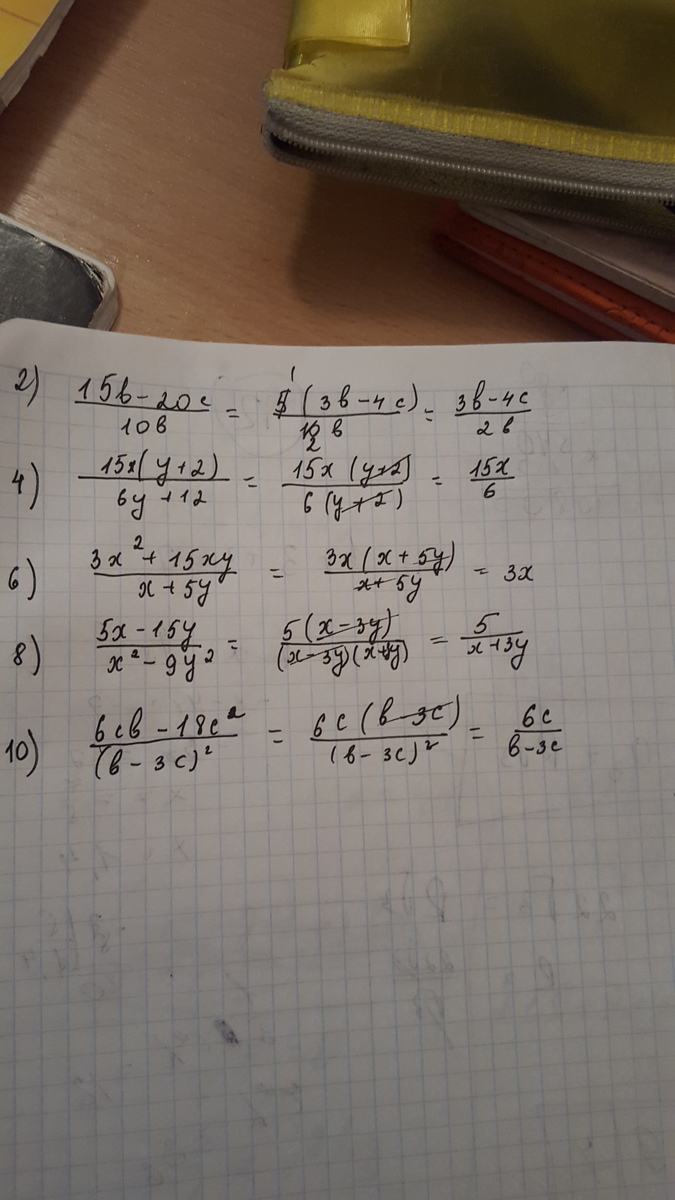 2) (15b - 20c)/(10b) = (5(3b - 4c))/(10b) 1 2 = (3b - 4c)/(2b)
4) (15x(y+2))/(6y + 12) = (15x(y+2))/(6(y+2)) = 15x/6
6) (3x² + 15xy)/(x + 5y) = (3x(x + 5y))/(x + 5y) = 3x
8) (5x - 15y)/(x² - 9y²) = (5(x - 3y))/((x - 3y)(x+3y)) = 5/(x+3y)
10) (6cb - 18c²)/((b - 3c)²) = (6c(b - 3c))/((b - 3c)²) = 6c/(b - 3c)